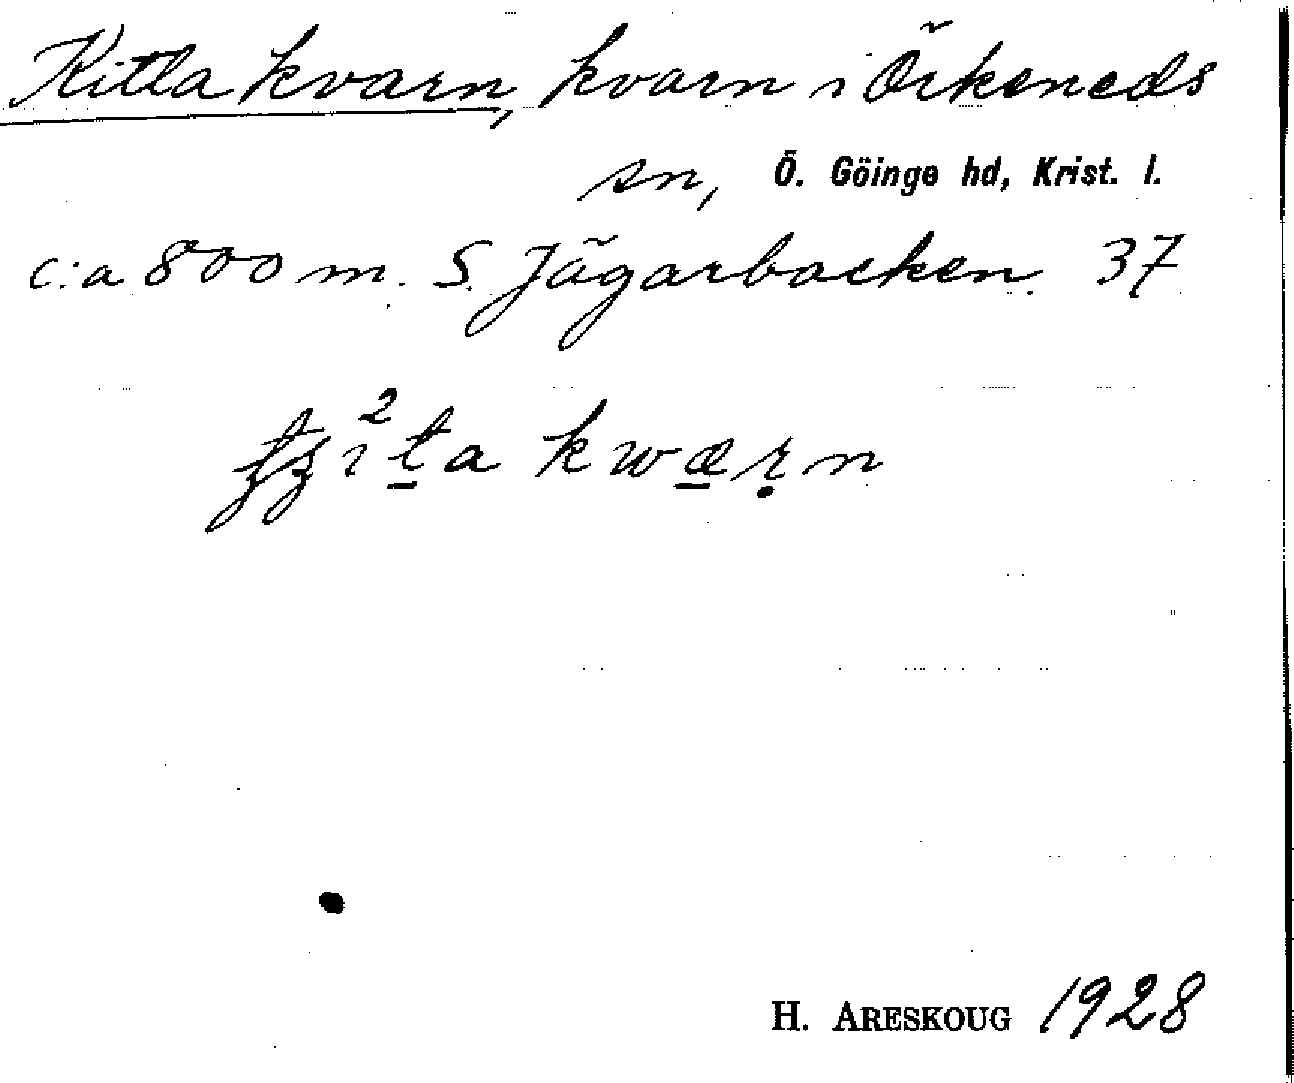 Kitla kvarn, kvarn i Örkeneds
sn, Ö. Göinge hd, Krist. l.
c:a 800 m. S. Jägarbacken. 37
kwærn
H. ARESKOUG 1928